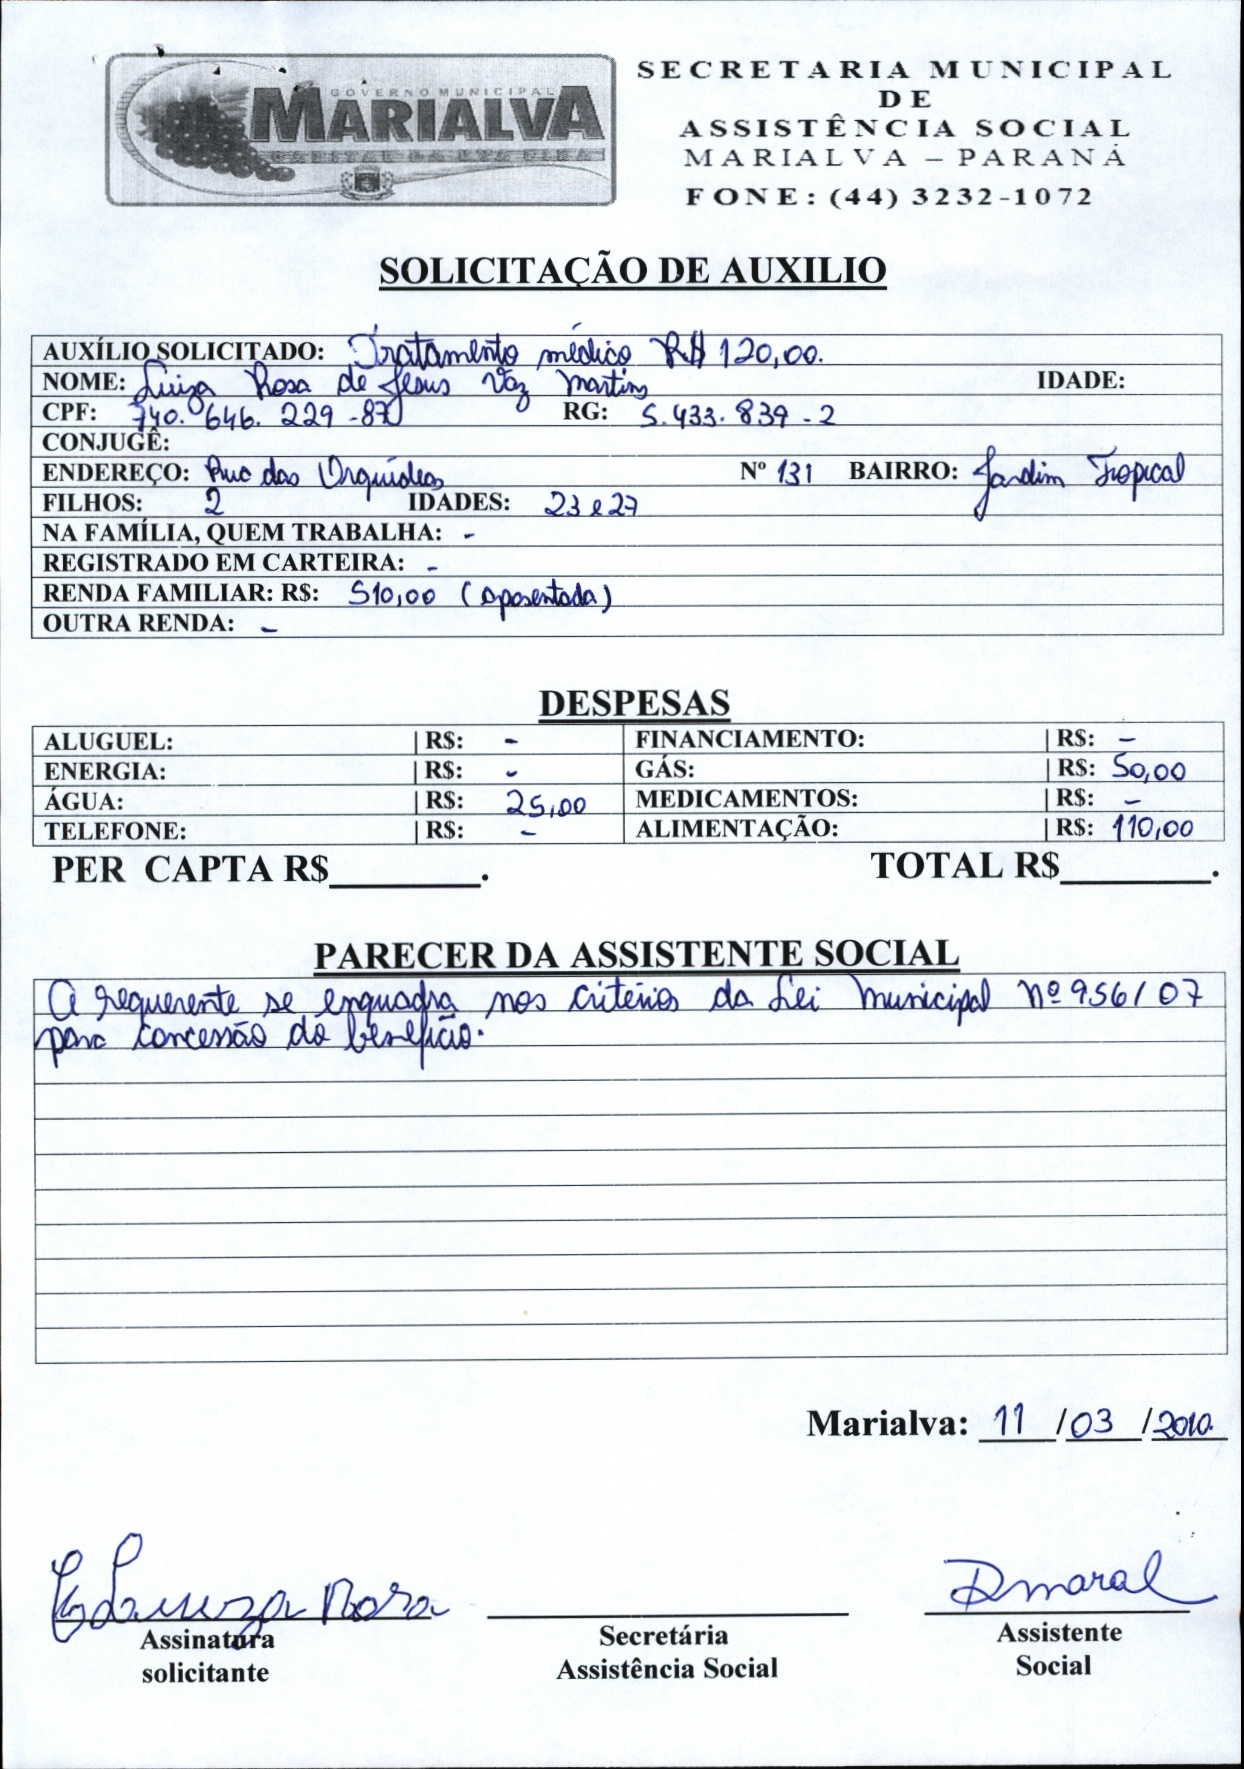 GOVERNO MUNICIPAL
MARIALVA
CAPITAL DA UVA FINA
SECRETARIA MUNICIPAL
DE
ASSISTÊNCIA SOCIAL
MARIALVA – PARANÁ
FONE: (44) 3232-1072
SOLICITAÇÃO DE AUXILIO
AUXÍLIO SOLICITADO: Tratamento médico R$ 120,00.
NOME: Luiza Rosa de Jesus Vaz Martins IDADE:
CPF: 740.646.229-87 RG: 5.433.839-2
CONJUGÊ:
ENDEREÇO: Rua das Orquídeas Nº 131 BAIRRO: Jardim Tropical
FILHOS: 2 IDADES: 23 e 27
NA FAMÍLIA, QUEM TRABALHA: -
REGISTRADO EM CARTEIRA: -
RENDA FAMILIAR: R$: 510,00 (aposentada)
OUTRA RENDA: -
DESPESAS
ALUGUEL: | R$: - FINANCIAMENTO: | R$: -
ENERGIA: | R$: - GÁS: | R$: 50,00
ÁGUA: | R$: 25,00 MEDICAMENTOS: | R$: -
TELEFONE: | R$: - ALIMENTAÇÃO: | R$: 110,00
PER CAPTA R$________. TOTAL R$________.
PARECER DA ASSISTENTE SOCIAL
A requerente se enquadra nos critérios da Lei Municipal nº 956/07
para concessão do benefício.
Marialva: 11 /03 /2010.
Rosa Amaral
Assinatura Secretária Assistente
solicitante Assistência Social Social